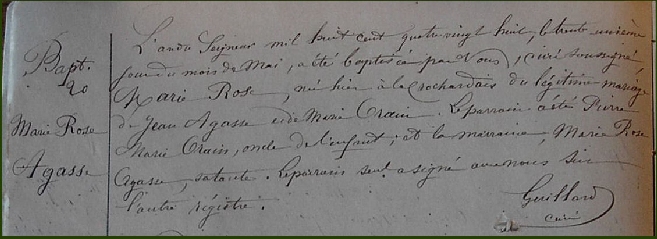 Bapt.
20
Marie Rose
Agasse
L'an du Seigneur mil huit cent quatre vingt huit, le trente unième
jour du mois de Mai, a été baptisée par Nous, curé soussigné,
Marie Rose, née hier à la Rochardais du légitime mariage
de Jean Agasse et de Marie Orain. Le parrain a été Pierre
Marie Orain, oncle de l'enfant; et la marraine, Marie Rose
Agasse, sa tante. Le parrain seul a signé avec nous sur
l'autre régistre.
Guillard
curé